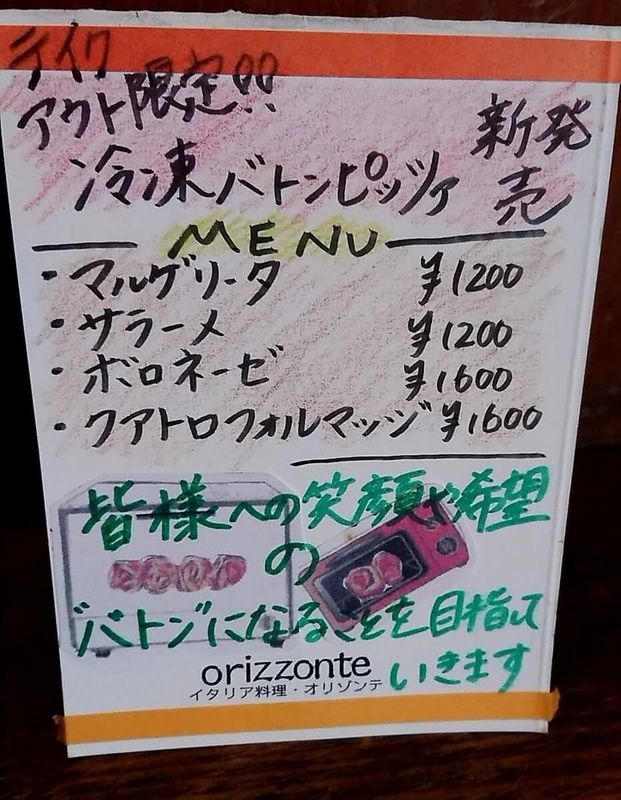 テイク
アウト限定!!
新発
冷凍バトンピッツァ 売
MENU
・マルゲリータ ¥1200
・サラーメ ¥1200
・ボロネーゼ ¥1600
・クアトロフォルマッジ ¥1600
皆様への笑顔や希望
の
バトンになることを目指して
いきます
orizzonte
イタリア料理・オリゾンテ